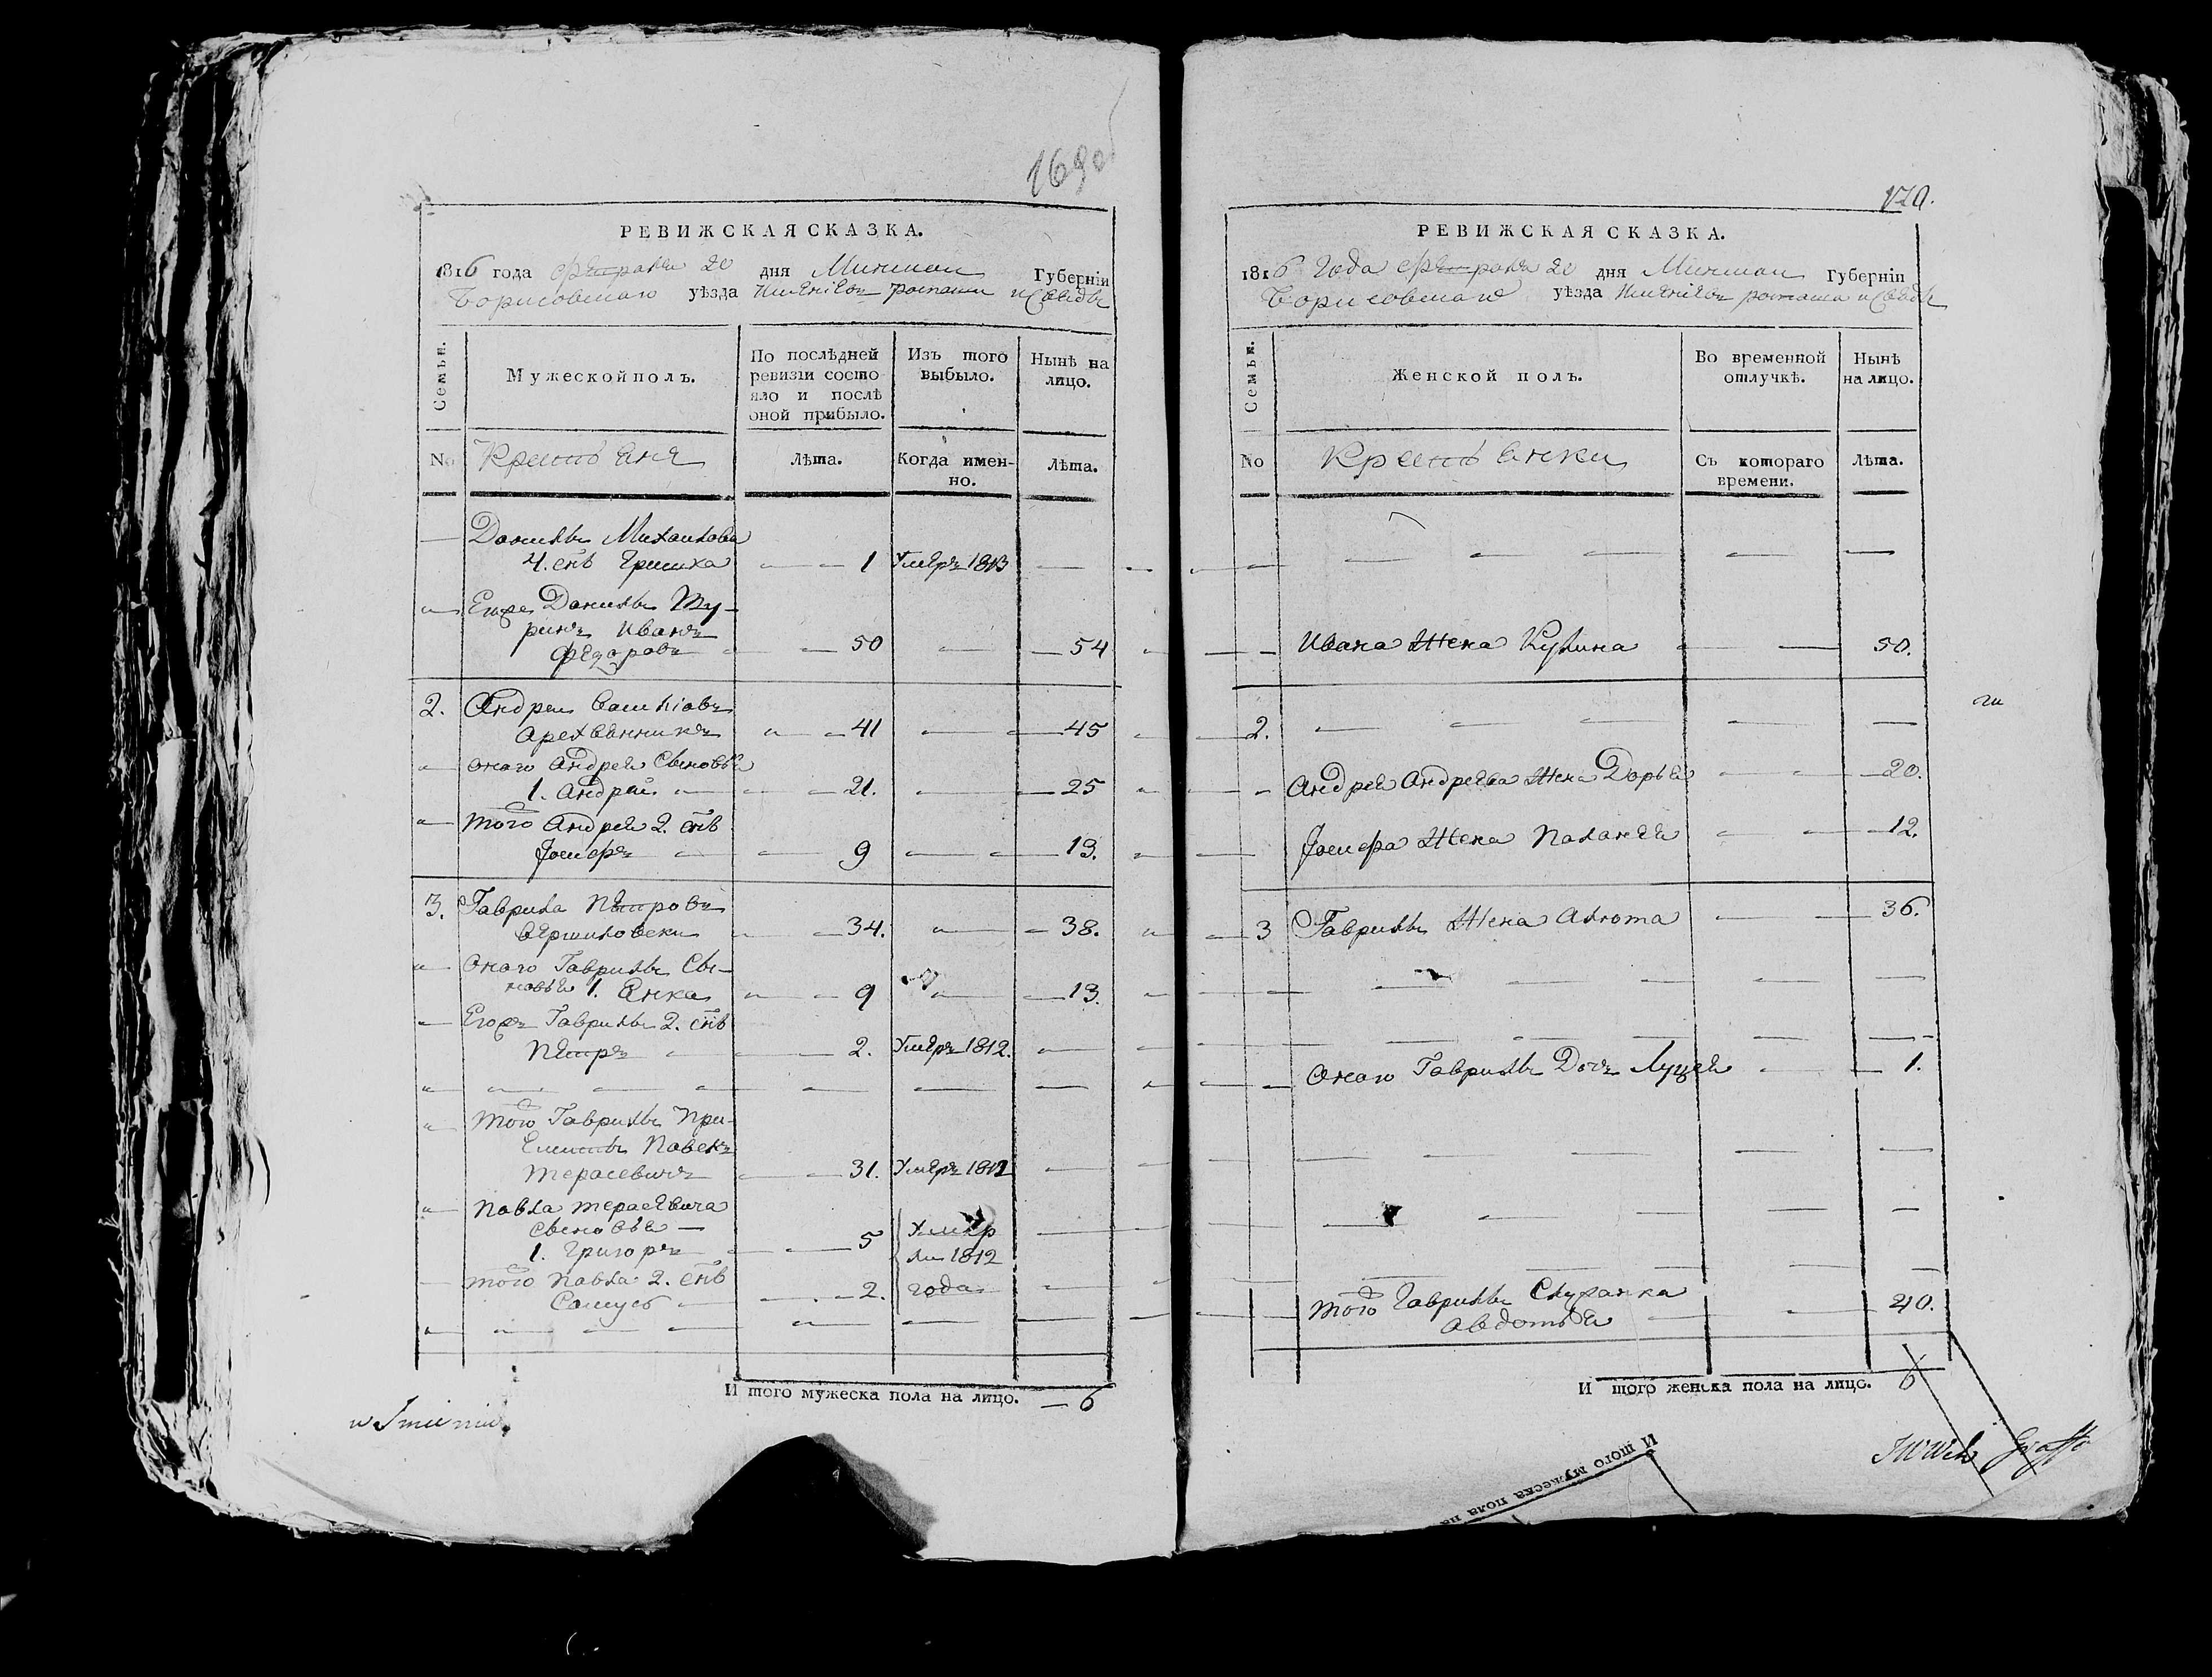 169об
РЕВИЖСКАЯ СКАЗКА.
1816 года февраля 20 дня Минской Губернiи
Борисовскаго уѣзда имѣнiевъ
Семьи.
Мужеской полъ.
По послѣдней ревизiи состояло и послѣ оной прибыло.
Изъ того выбыло.
Нынѣ на лицо.
No
Крестьяне
Лѣта.
Когда именно.
Лѣта.
Данилы Михайлова
4. снъ Гришка — — 1 Умеръ 1813 —
Еще Данилы
Иванъ
Федоровъ — 50 — 54
2. Андрей
41 — 45
онаго Андрея Сыновья
1. Андрей — 21. — 25
того Андрея 2. снъ
Iосифъ — 9 — 13.
3. Гаврила Петровъ
34. — 38.
Онаго Гаврилы Сы-
новья 1. Янка — 9 — 13.
Егожъ Гаврилы 2. снъ
Петръ — 2. Умеръ 1812. —
того Гаврилы При-
Павелъ
Терасевичъ — 31. Умеръ 1812 —
Павла Терасевича
сыновья —
1. Григоръ — 5 Умер
ли 1812
того Павла 2. снъ
Самусь — 2. года —
И того мужеска пола на лицо. — 6
170.
РЕВИЖСКАЯ СКАЗКА.
1816 Года февраля 20 дня Минской Губернiи
Борисовскаго уѣзда имѣнiевъ
Семьи.
Женской полъ.
Во временной отлучкѣ.
Нынѣ на лицо.
No
Крестьянки
Съ котораго времени.
Лѣта.
Ивана Жена Кулина — 50.
2. —
Андрея Андреева Жена Дорья — 20.
Iосифа Жена Паланея — 12.
3 Гаврилы Жена Ахюта — 36.
Онаго Гаврилы Дочь Луцея — 1.
того Гаврилы Служанка
Авдотья — 40.
И того женска пола на лицо. 6
И того мужеска пола на